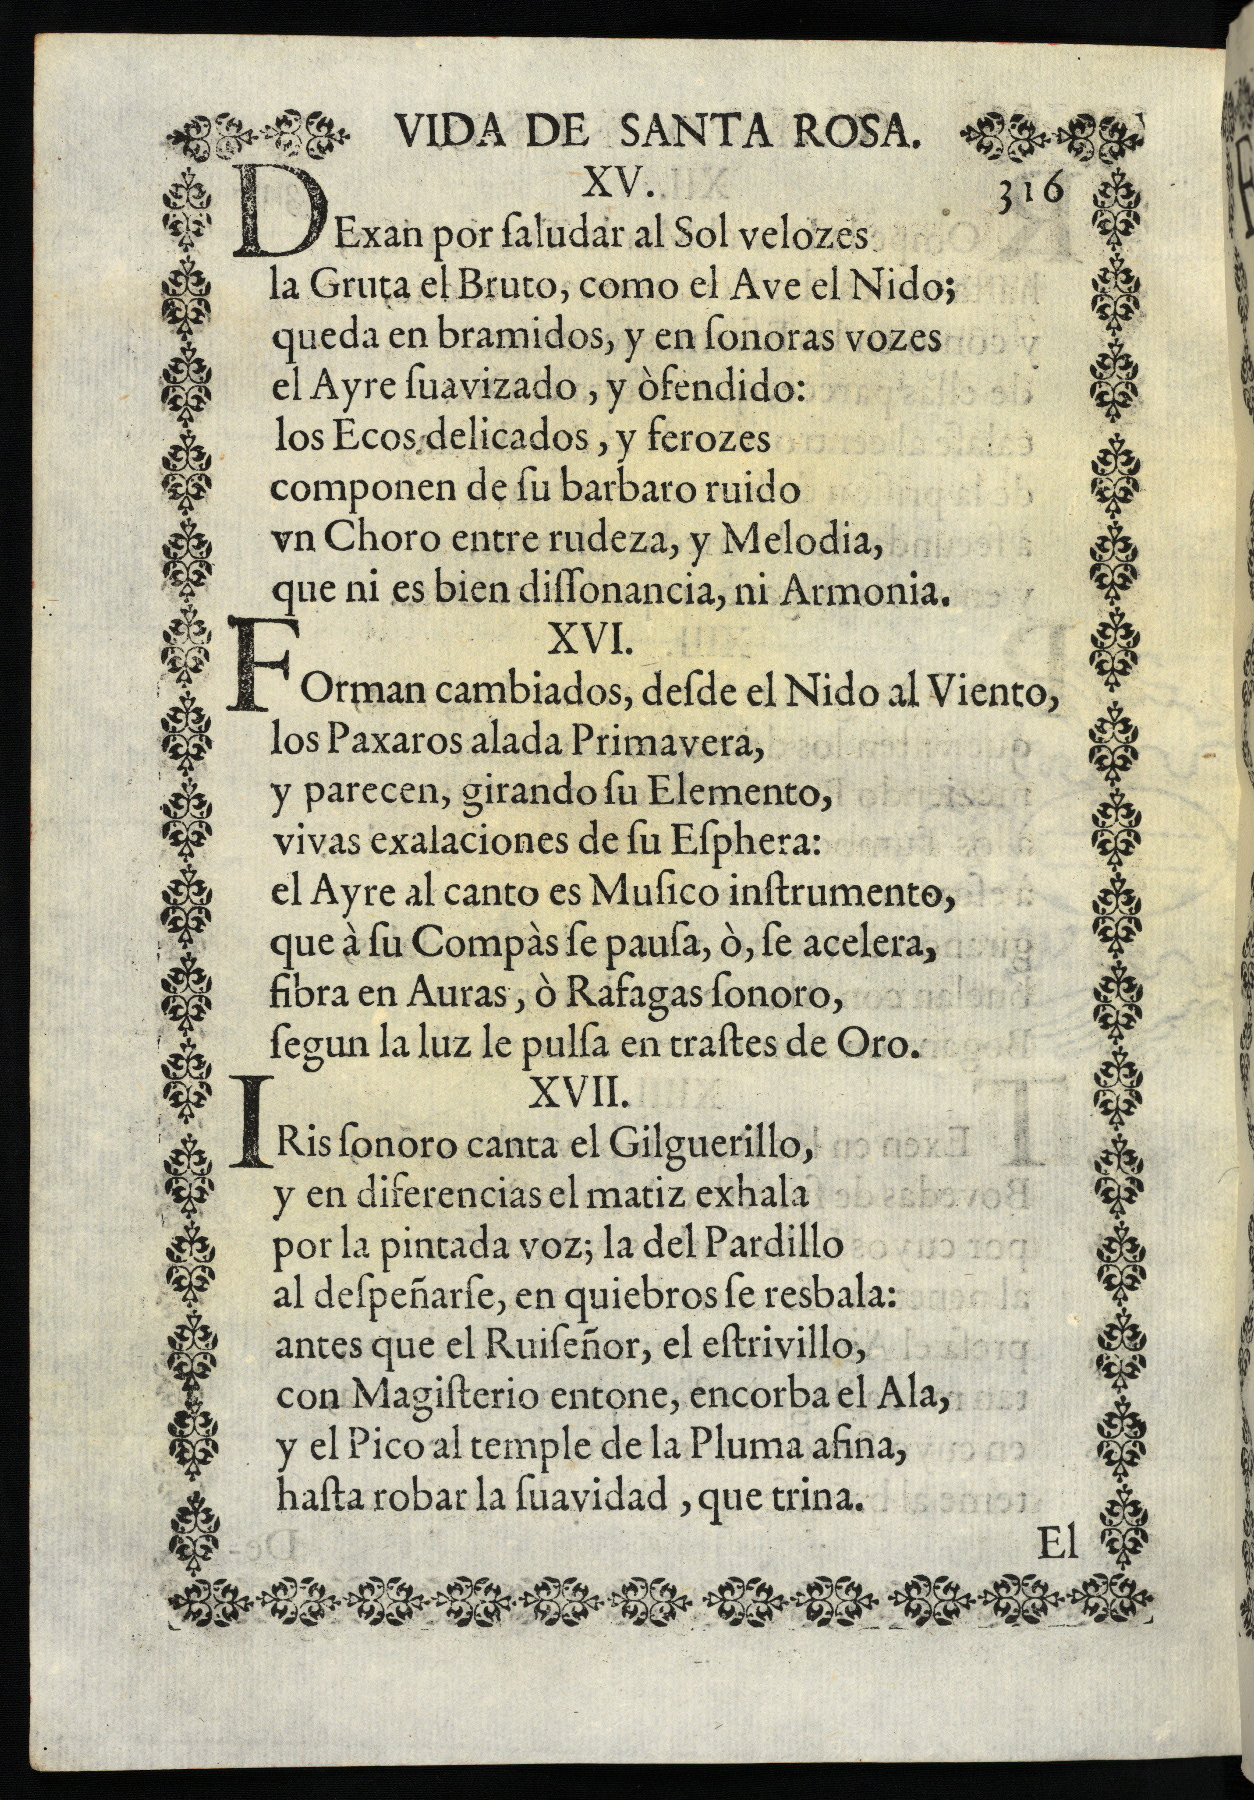 VIDA DE SANTA ROSA.
XV.
316
DExan por ſaludar al Sol velozes
la Gruta el Bruto, como el Ave el Nido;
queda en bramidos, y en ſonoras vozes
el Ayre ſuavizado , y òfendido:
los Ecos delicados , y ferozes
componen de ſu barbaro ruido
vn Choro entre rudeza, y Melodia,
que ni es bien diſſonancia, ni Armonia.
XVI.
FOrman cambiados, deſde el Nido al Viento,
los Paxaros alada Primavera,
y parecen, girando ſu Elemento,
vivas exalaciones de ſu Eſphera:
el Ayre al canto es Muſico inſtrumento,
que à ſu Compàs ſe pauſa, ò, ſe acelera,
fibra en Auras , ò Rafagas ſonoro,
ſegun la luz le pulſa en traſtes de Oro.
XVII.
IRis ſonoro canta el Gilguerillo,
y en diferencias el matiz exhala
por la pintada voz; la del Pardillo
al deſpeñarſe, en quiebros ſe resbala:
antes que el Ruiſeñor, el eſtrivillo,
con Magiſterio entone, encorba el Ala,
y el Pico al temple de la Pluma afina,
haſta robar la ſuavidad , que trina.
El